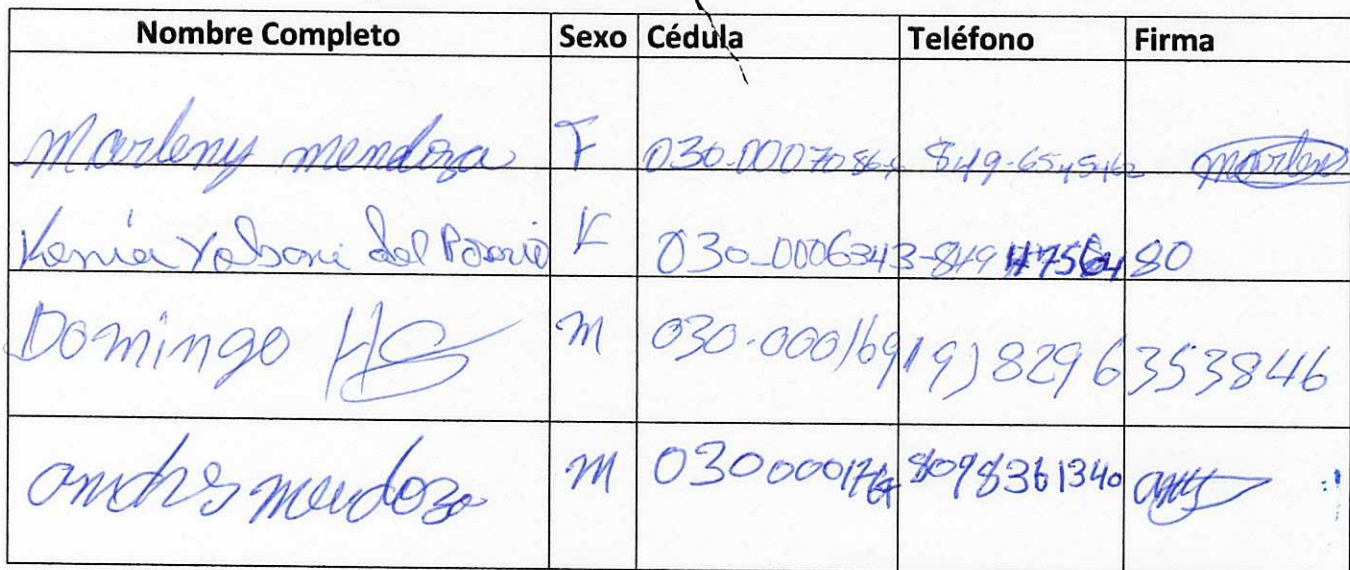 Nombre Completo Sexo Cédula Teléfono Firma
Marleny mendoza F 030-0007086 849-6545462 marleny
Kenia del Rosario F 030-0006343-849 4756480
Domingo M 030-00016919 8296353846
andres mendoza M 0300000176 8098361340